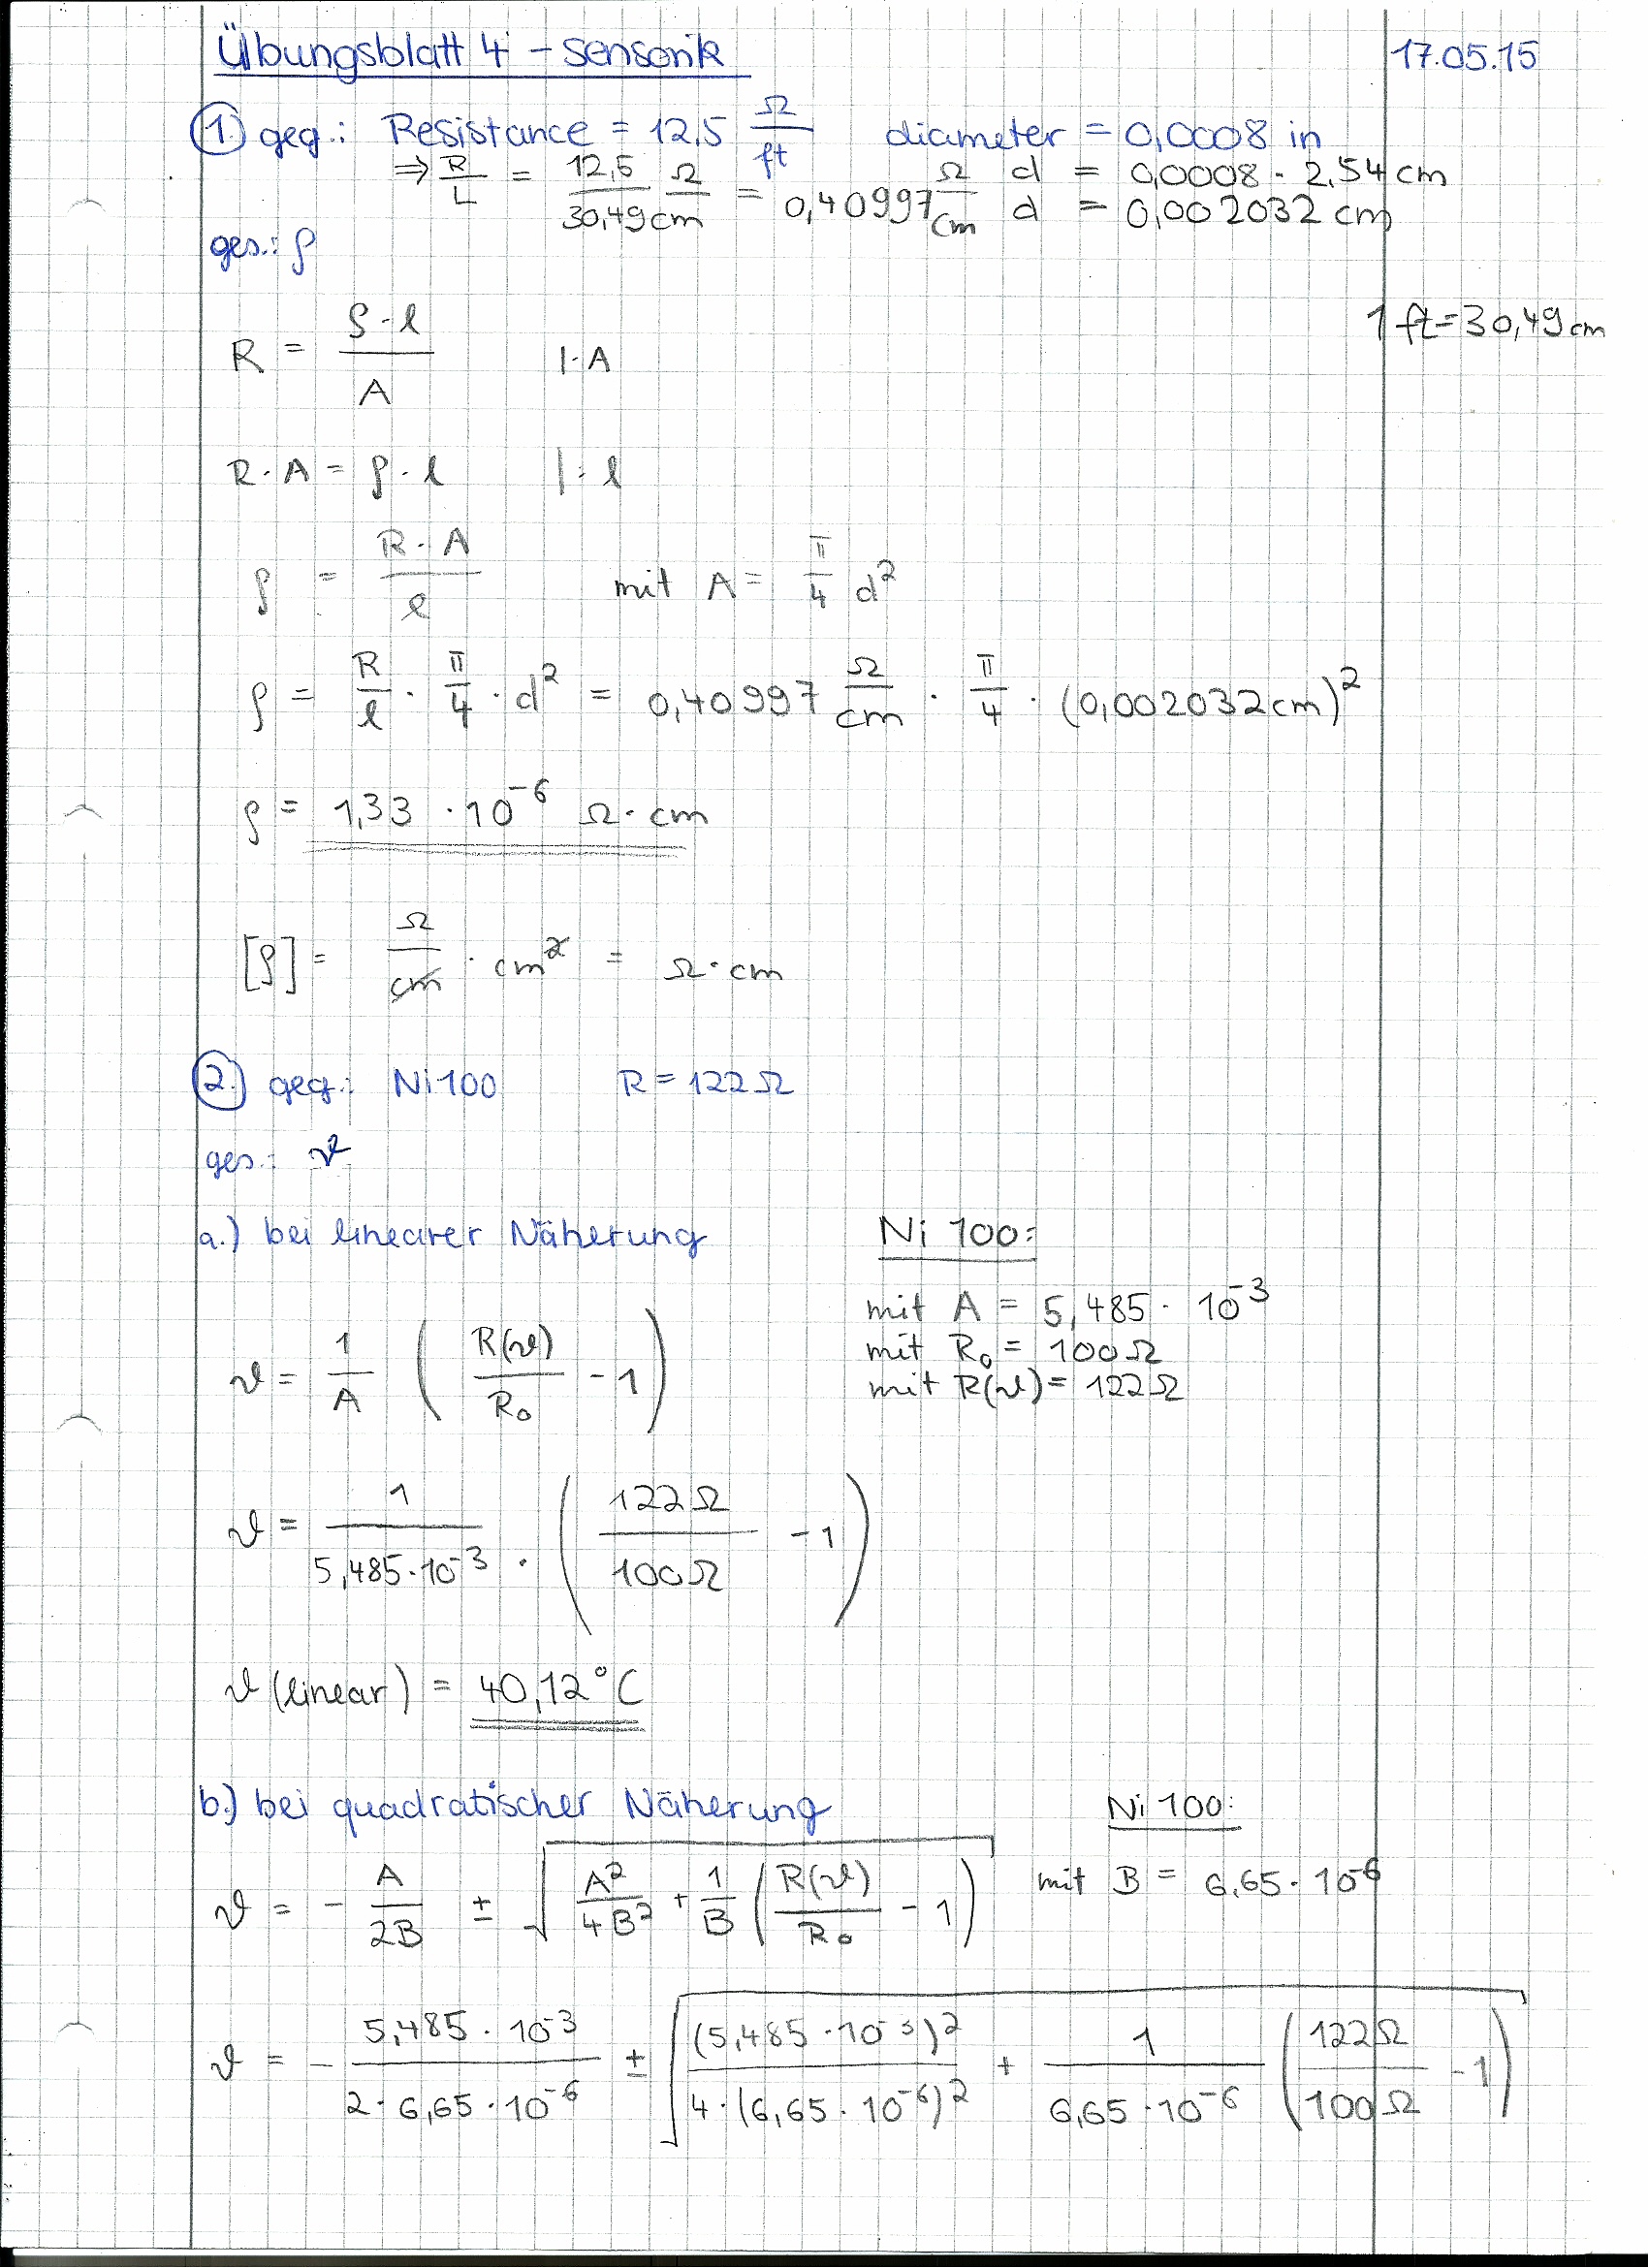 Übungsblatt 4 - Sensorik 17.05.15
1.) geg.: Resistance = 12,5 Ω/ft diameter = 0,0008 in
⇒ R/L = 12,5/30,49cm Ω = 0,40997 Ω/cm d = 0,0008 · 2,54 cm
d = 0,002032 cm
ges.: ρ
1 ft = 30,49 cm
R = ρ·l / A | · A
R · A = ρ · l | : l
ρ = R · A / l mit A = π/4 d²
ρ = R/l · π/4 · d² = 0,40997 Ω/cm · π/4 · (0,002032 cm)²
ρ = 1,33 · 10⁻⁶ Ω · cm
[ρ] = Ω/cm · cm² = Ω · cm
2.) geg.: Ni100 R = 122Ω
ges.: ϑ
a.) bei linearer Näherung Ni 100:
mit A = 5,485 · 10⁻³
mit R₀ = 100Ω
mit R(ϑ) = 122Ω
ϑ = 1/A ( R(ϑ)/R₀ - 1 )
ϑ = 1/(5,485 · 10⁻³) · ( 122Ω/100Ω - 1 )
ϑ (linear) = 40,12 °C
b.) bei quadratischer Näherung Ni 100:
ϑ = - A/2B ± √( A²/4B² + 1/B ( R(ϑ)/R₀ - 1 ) ) mit B = 6,65 · 10⁻⁶
ϑ = - 5,485 · 10⁻³/(2 · 6,65 · 10⁻⁶) ± √( (5,485 · 10⁻³)²/(4 · (6,65 · 10⁻⁶)²) + 1/(6,65 · 10⁻⁶) ( 122Ω/100Ω - 1 ) )